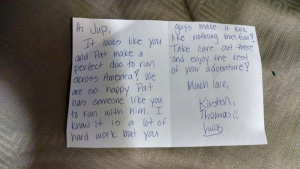 Hi Jup,
It looks like you
and Pat make a
perfect duo to run
across America! We
are so happy Pat
has someone like you
to run with him. I
know it is a lot of
hard work but you
guys make it look
like nothing but fun!
Take care out there
and enjoy the rest
of your adventure!
Much love,
Kirsten,
Thomas &
Lucas